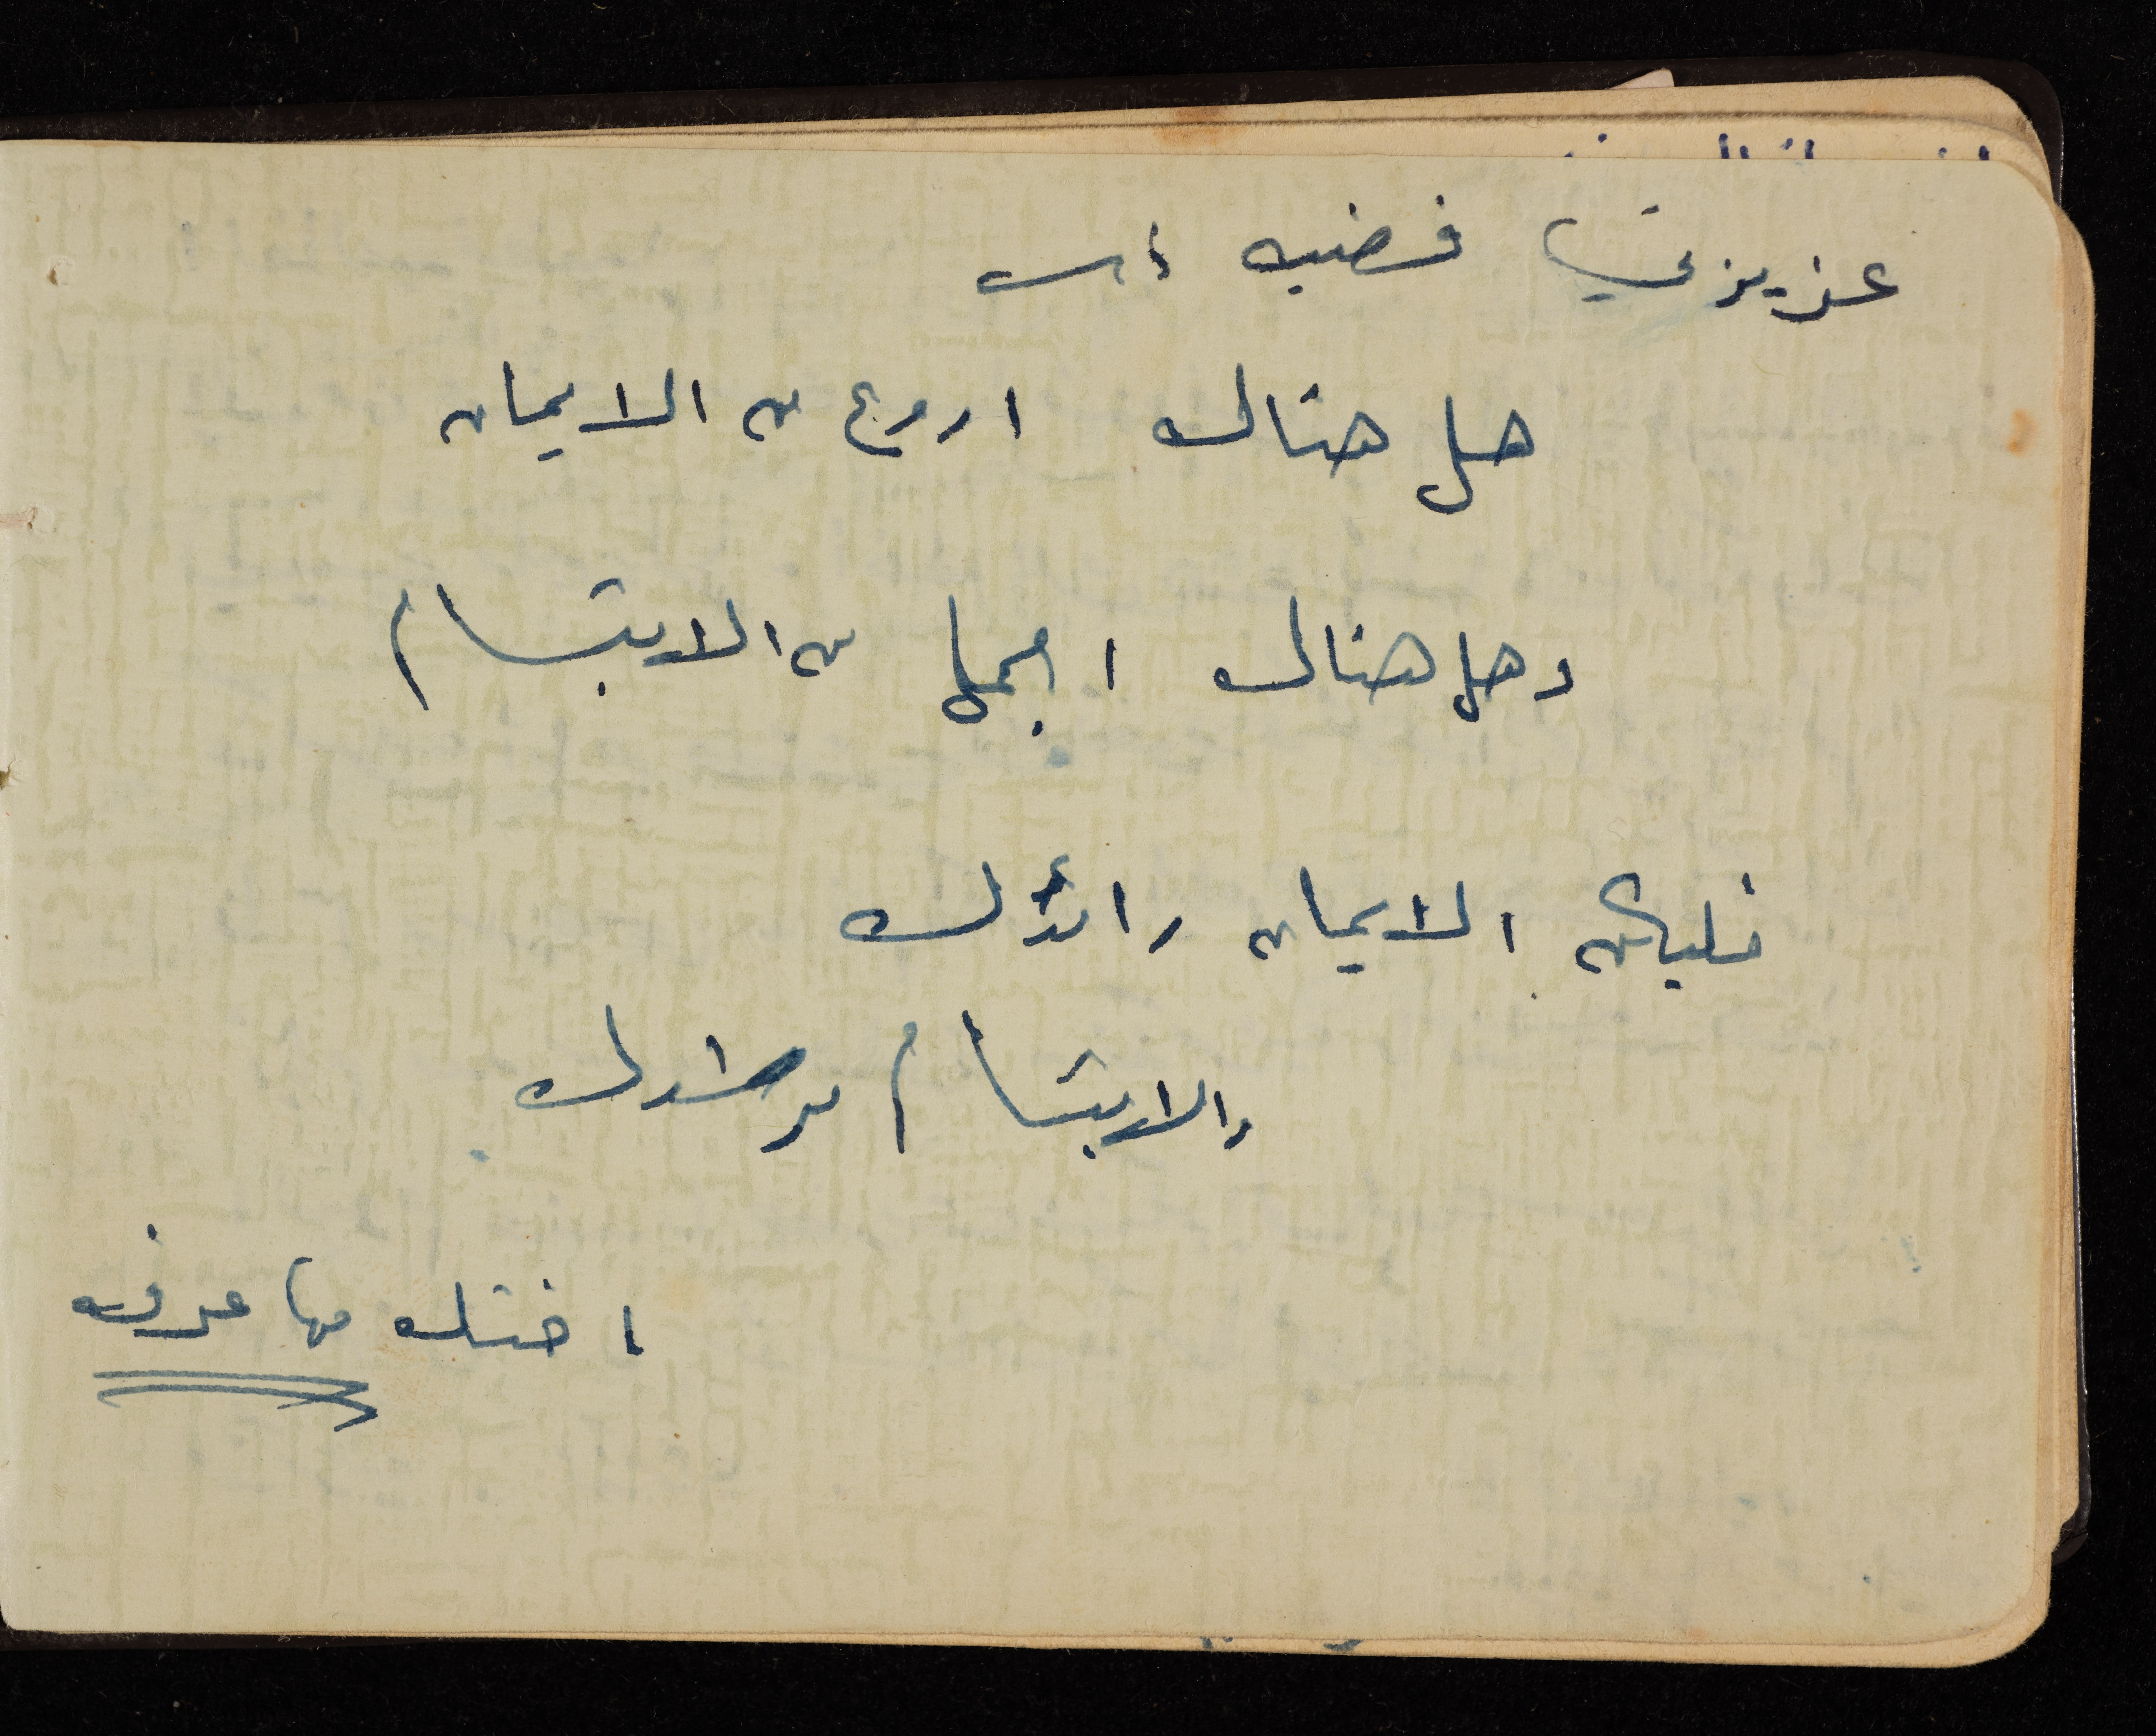 عزيزتي فضيه
هل هناك اروع من الايمان
وهل هناك اجمل من الابتسام
فليكن الايمان رائدك
والابتسام مرشدك
اختك مها عرفه